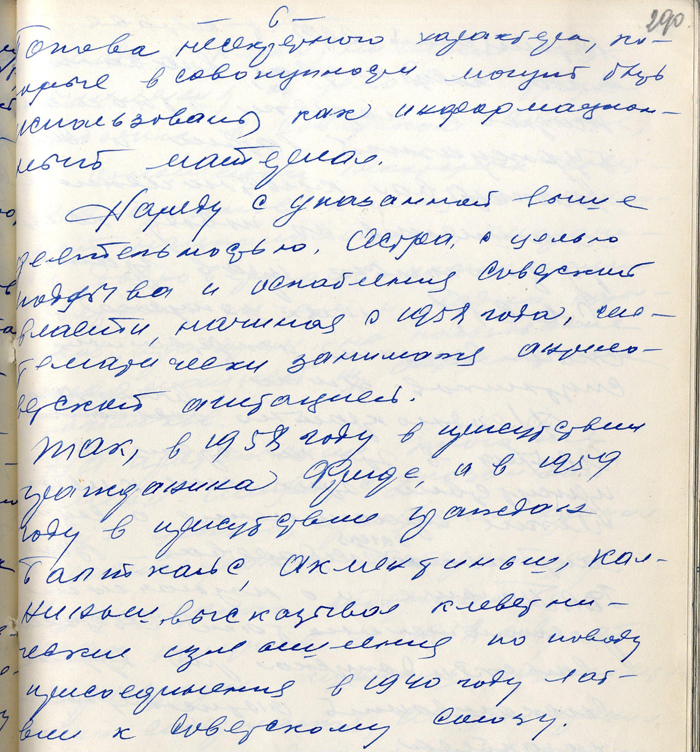 6
290
Готова несекретного характера, ко-
торые в совокупности могут быть
использованы как информацион-
ный материал.
Наряду с указанной выше
деятельностью, Астра, с целью
подрыва и ослабления Советской
власти, начиная с 1958 года, сис-
тематически занимался антисо-
ветской агитацией.
Так, в 1958 году в присутствии
гражданина Фриде, а в 1959
году в присутствии граждан
Калниньш, высказывал клеветни-
ческие измышления по поводу
присоединения в 1940 году Лат-
вии к Советскому Союзу.